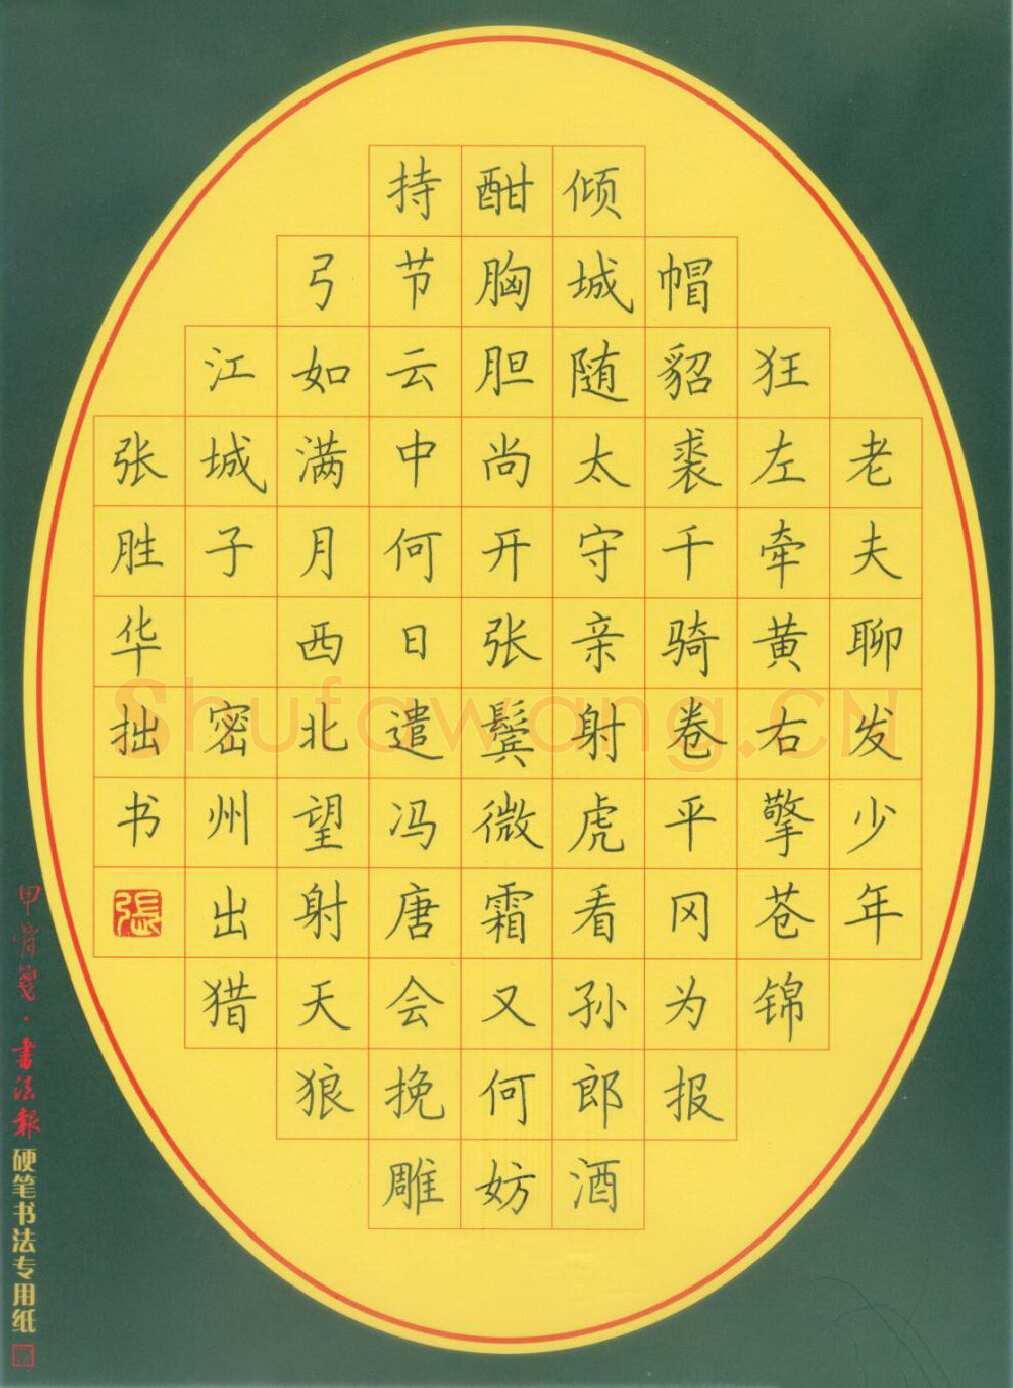 老夫聊发少年
狂左牵黄右擎苍锦
帽貂裘千骑卷平冈为报
倾城随太守亲射虎看孙郎酒
酣胸胆尚开张鬓微霜又何妨
持节云中何日遣冯唐会挽雕
弓如满月西北望射天狼
江城子 密州出猎
张胜华拙书
張
甲骨笺·書法報硬笔书法专用纸
Shufawang.CN